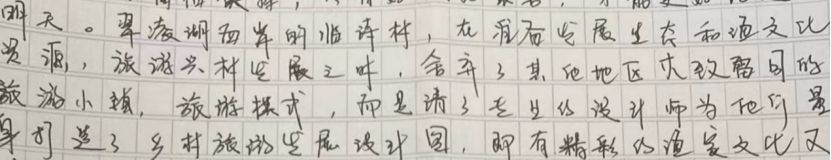 明天。翠凌湖西岸的临湾村，在着而发展生态和酒文化
资源，旅游兴村发展之时，舍弃了其他地区大致雷同的
旅游小镇，旅游模式，而是请了专业的设计师为他们量
身打造了乡村旅游发展设计图，即有精彩的渔家文化又